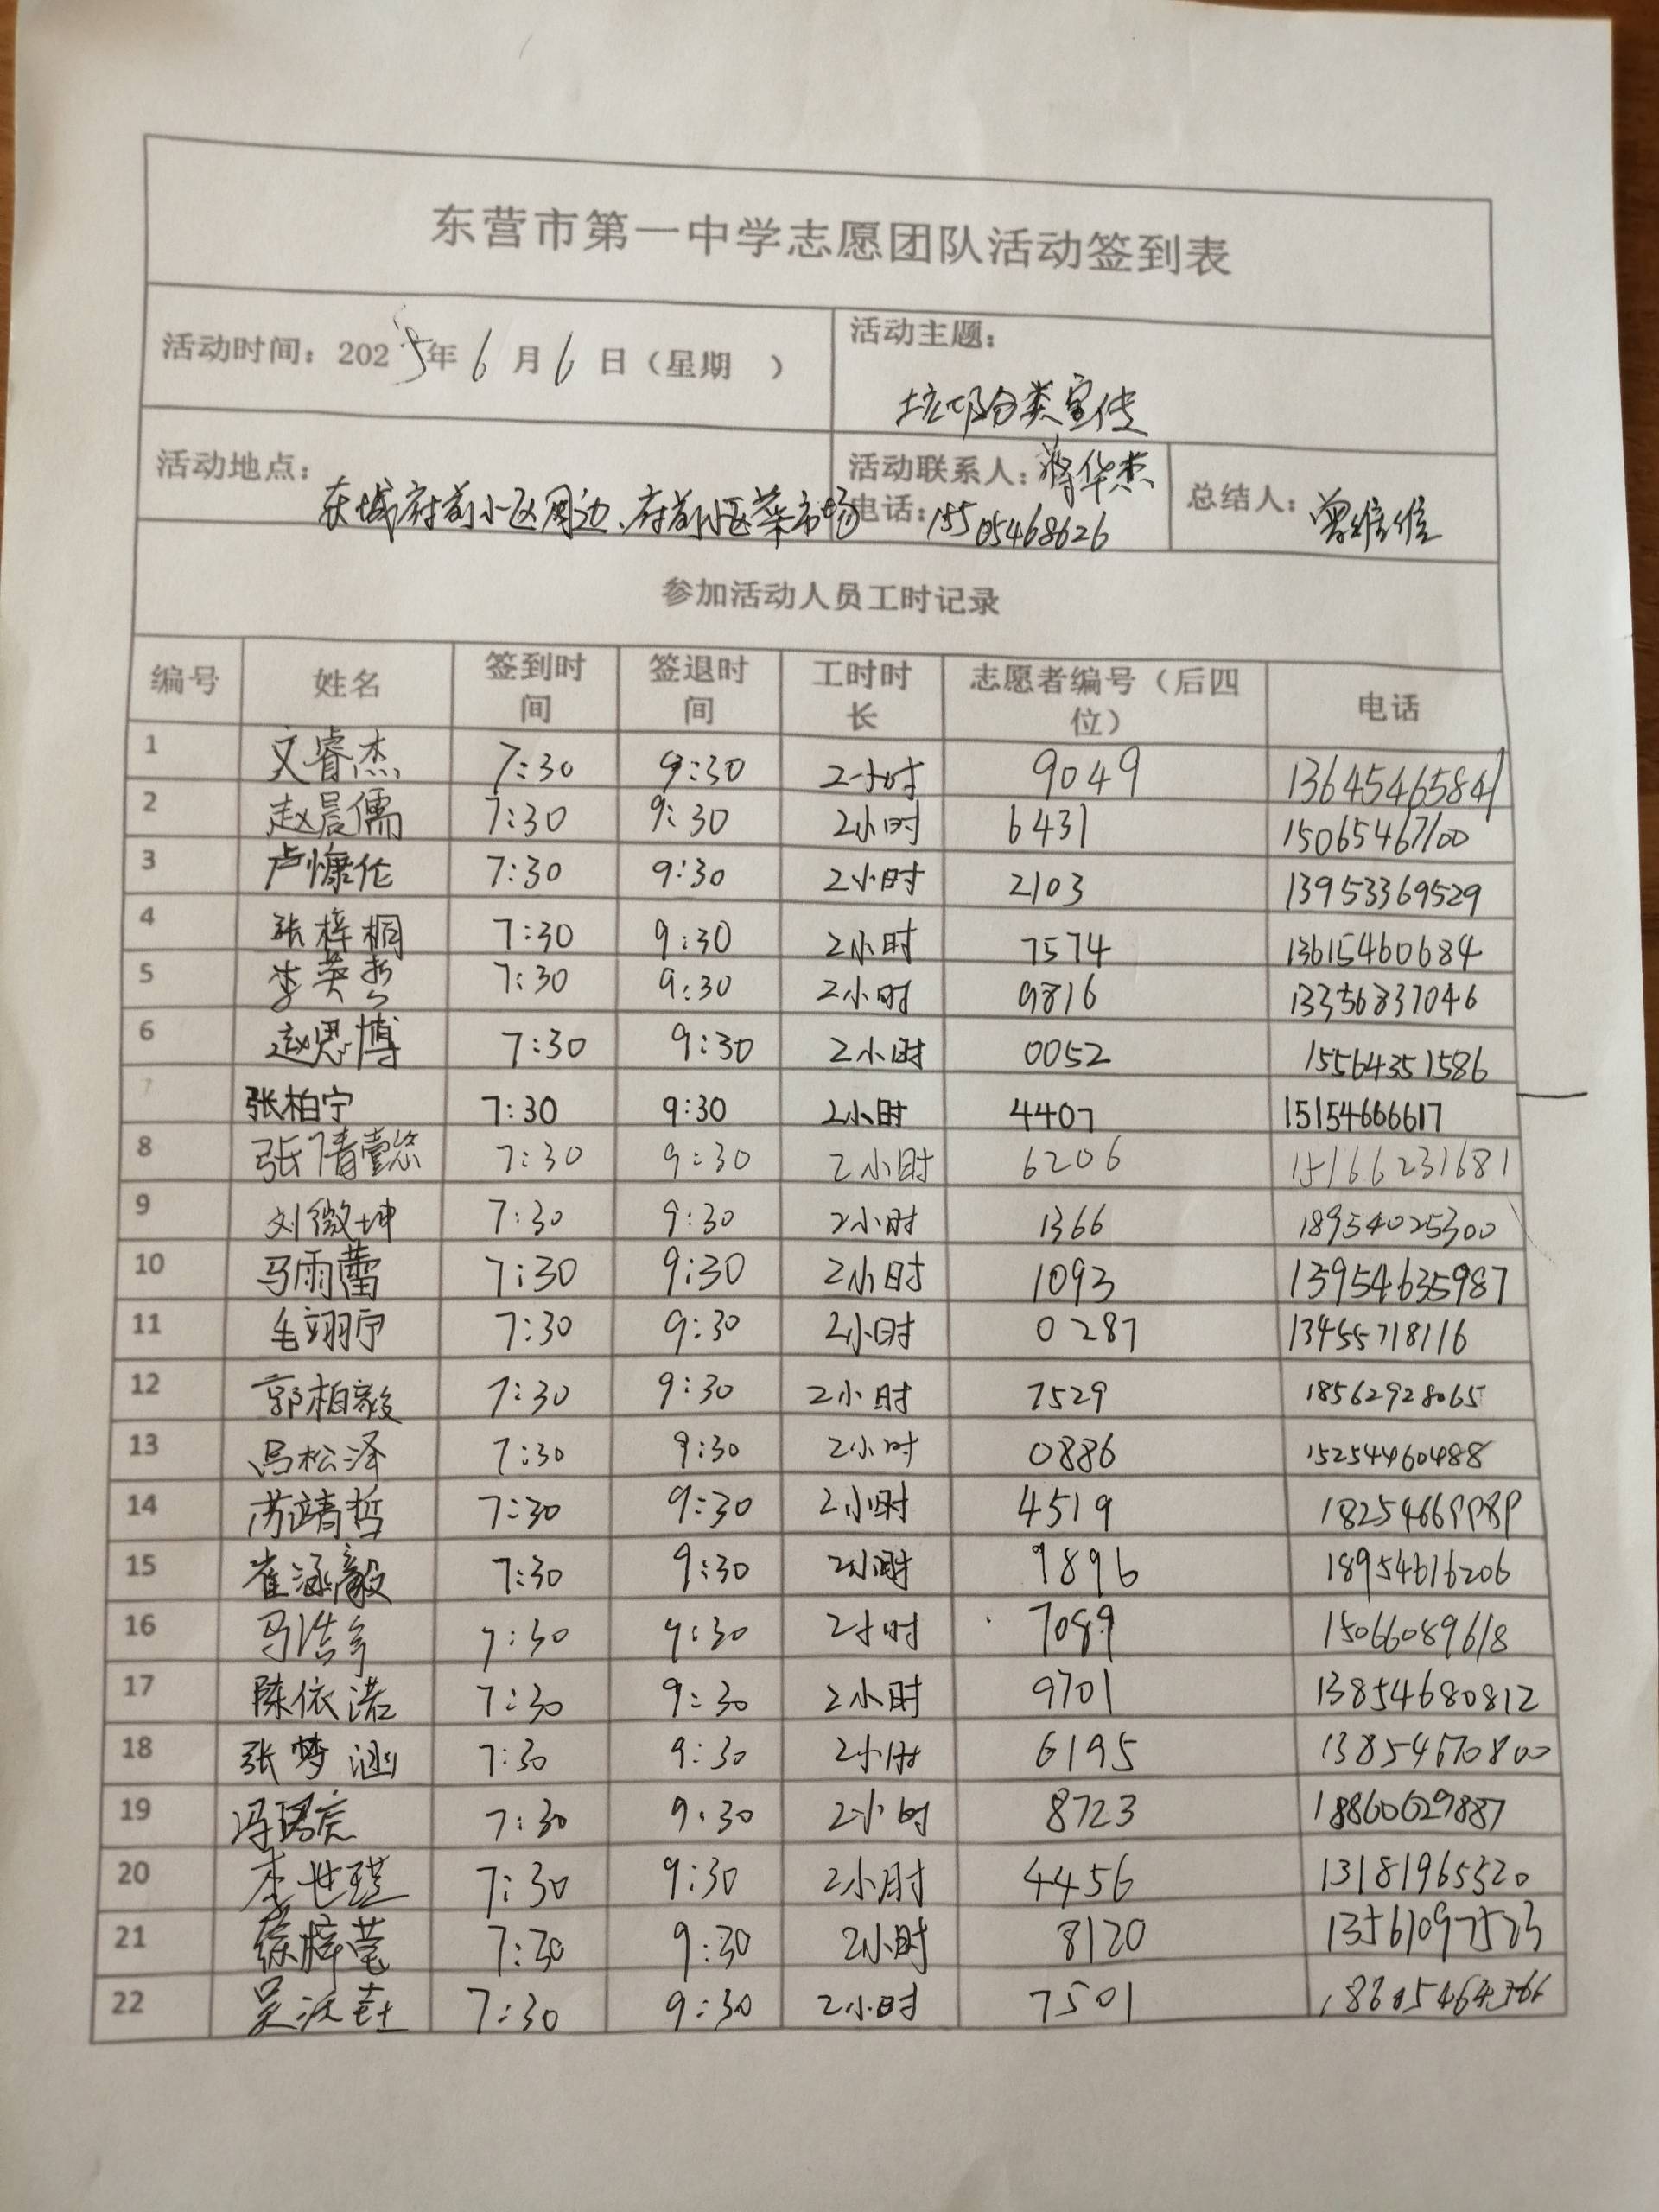 东营市第一中学志愿团队活动签到表
活动时间：2025年6月6日（星期　） 活动主题：
垃圾分类宣传
活动地点： 活动联系人：蒋华杰 总结人：曾维维
东城府前小区周边、府前小区菜市场 电话：15505468626
参加活动人员工时记录
编号 姓名 签到时间 签退时间 工时时长 志愿者编号（后四位） 电话
1 文睿杰 7:30 9:30 2小时 9049 13645465841
2 赵晨儒 7:30 9:30 2小时 6431 15065467100
3 卢慷伦 7:30 9:30 2小时 2103 13953369529
4 张梓桐 7:30 9:30 2小时 7574 13615460684
5 李英哲 7:30 9:30 2小时 9816 13356837046
6 赵思博 7:30 9:30 2小时 0052 15564351586
7 张柏宁 7:30 9:30 2小时 4407 15154666617
8 张倩懿悠 7:30 9:30 2小时 6206 15166231681
9 刘微坤 7:30 9:30 2小时 1366 18954025300
10 马雨蕾 7:30 9:30 2小时 1093 13954635987
11 毛翊宁 7:30 9:30 2小时 0287 13455718116
12 郭柏毅 7:30 9:30 2小时 7529 18562928065
13 冯松泽 7:30 9:30 2小时 0886 15254460488
14 苏靖哲 7:30 9:30 2小时 4519 18254669989
15 崔涵毅 7:30 9:30 2小时 9896 18954616206
16 马浩宇 7:30 9:30 2小时 7089 15066089618
17 陈依诺 7:30 9:30 2小时 9701 13854680812
18 张梦涵 7:30 9:30 2小时 6195 13854670800
19 冯珺虎 7:30 9:30 2小时 8723 18860629887
20 李世琪 7:30 9:30 2小时 4456 13181965520
21 徐梓莹 7:30 9:30 2小时 8120 13561097523
22 7:30 9:30 2小时 7501